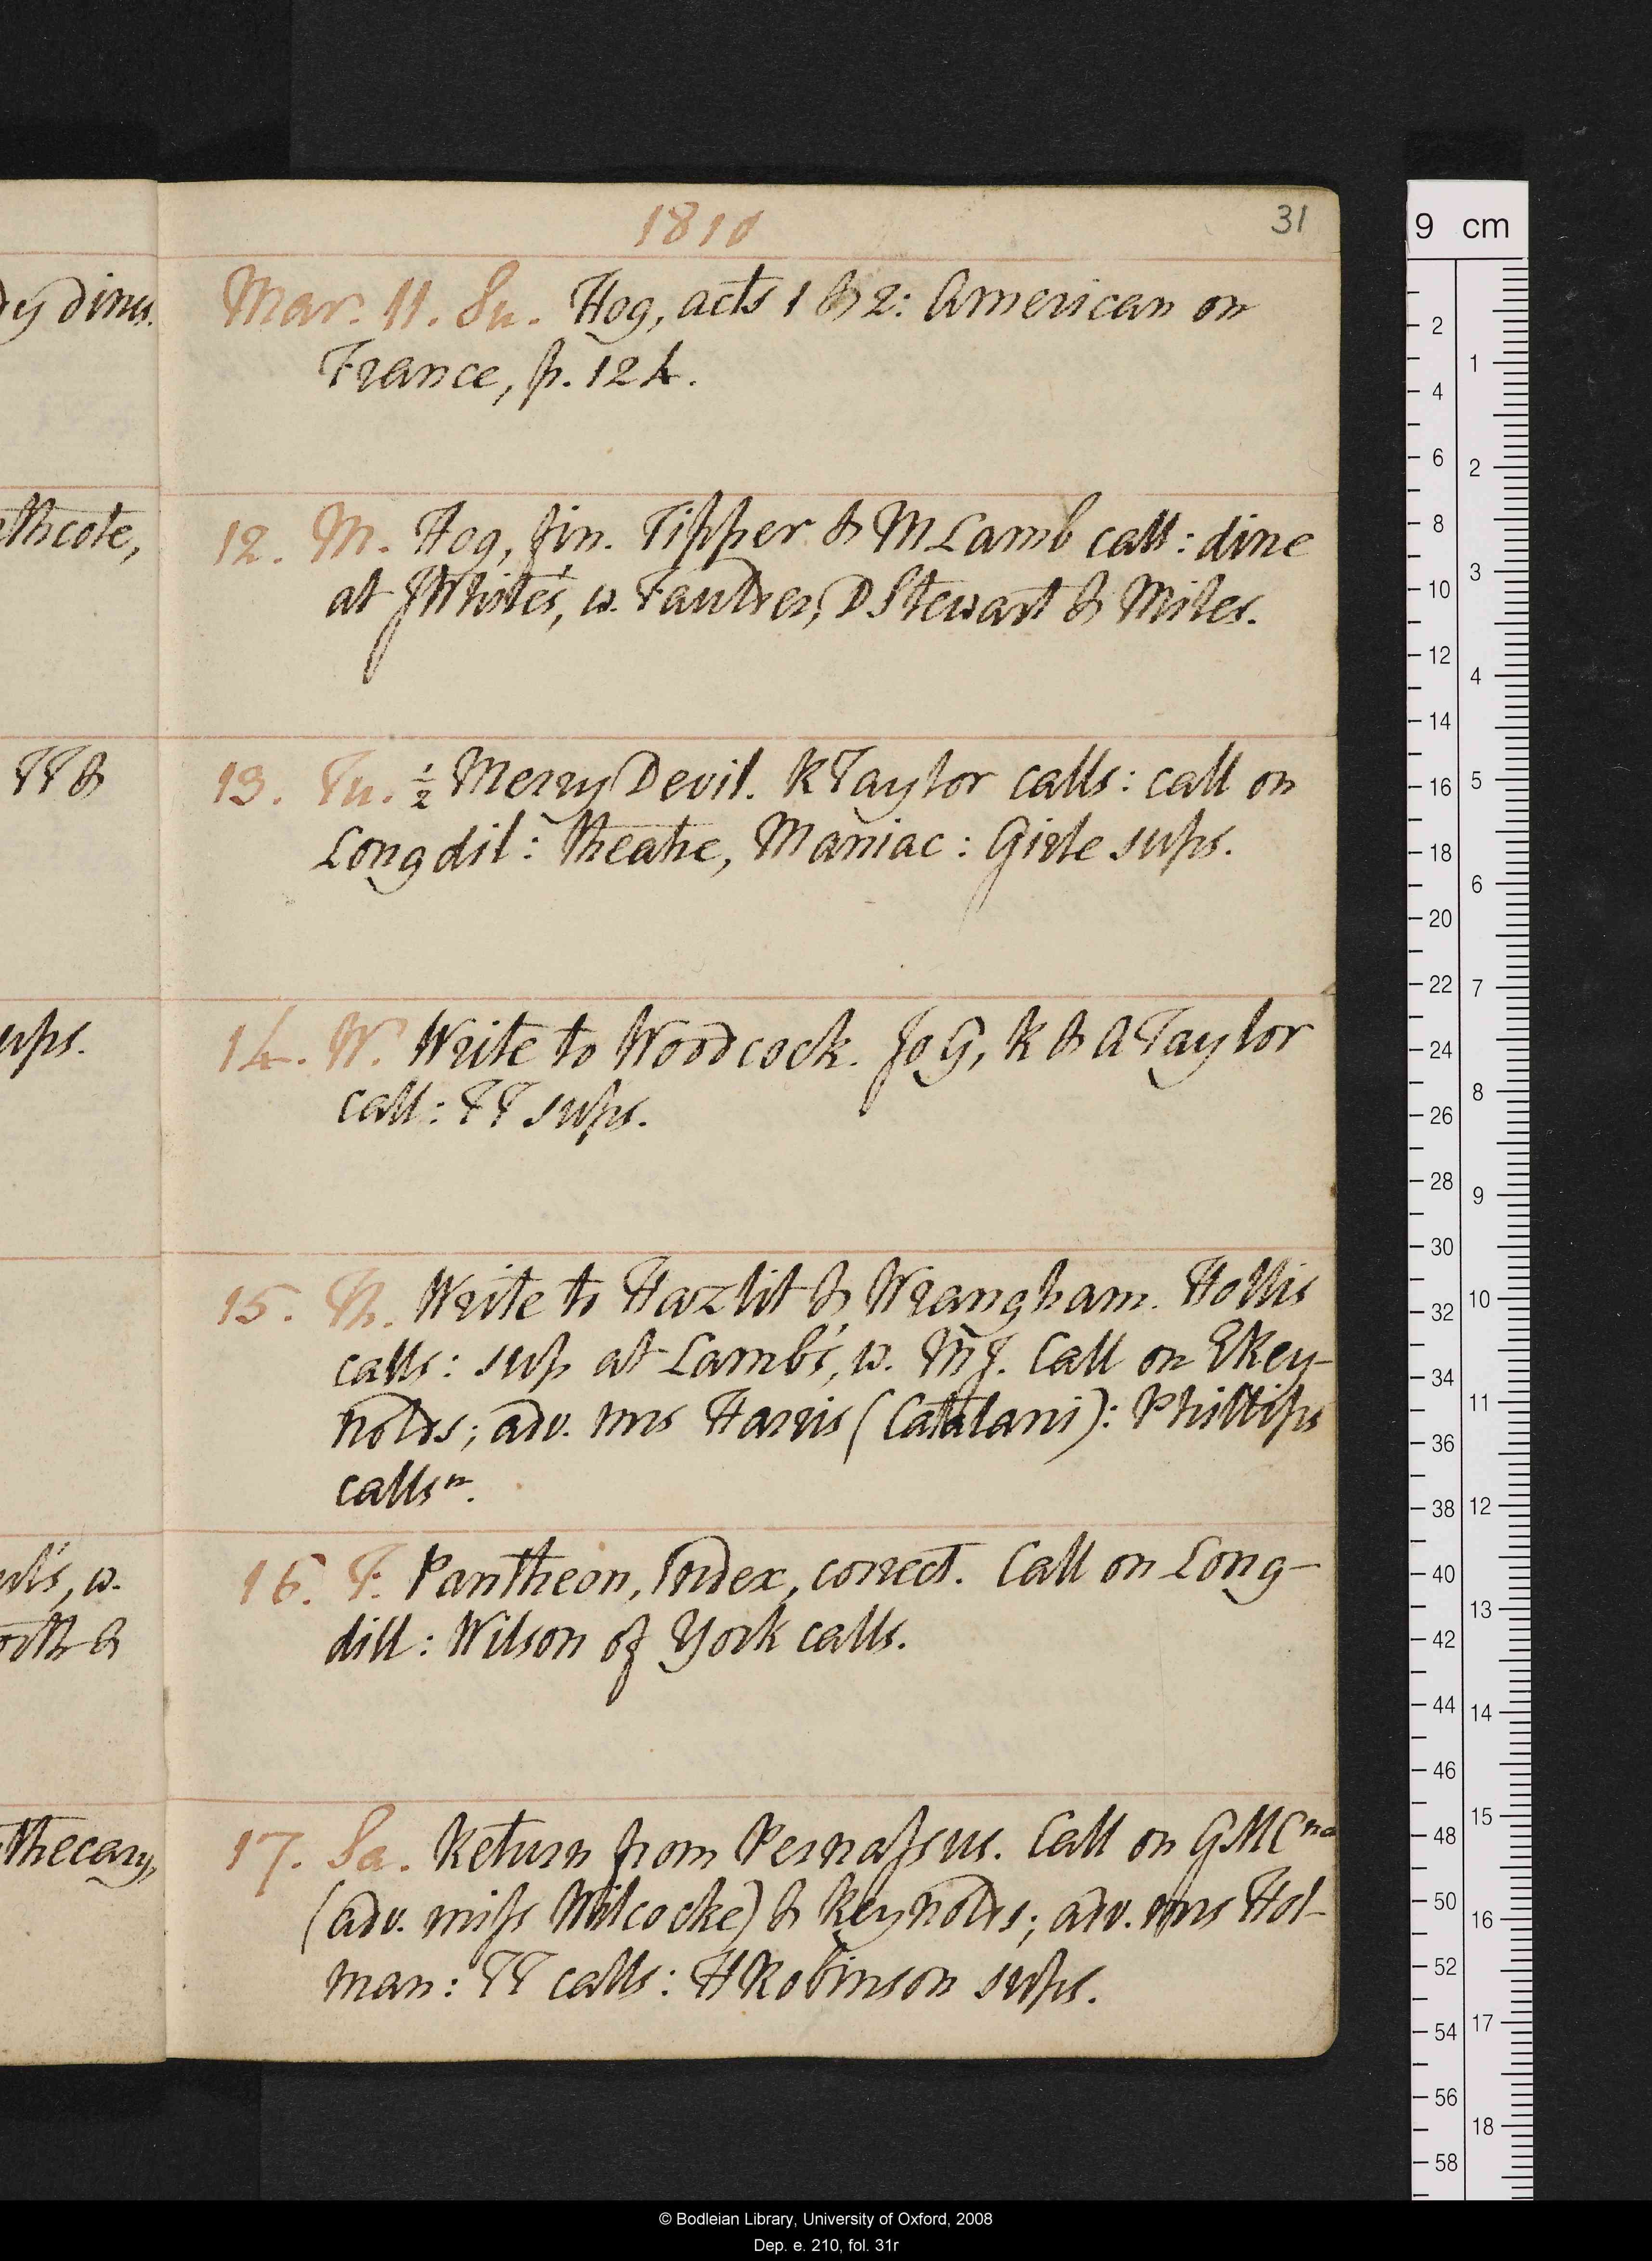 1810
31
Mar. 11. Su. Hog, acts 1 & 2: American on
France, p. 124.
12. M. Hog, fin. Tipper & M Lamb call: dine
at J White's, w. Faulder, D Stewart & Miles.
13. Tu. ½ Merry Devil. K Taylor calls: call on
Longdil: theatre, Maniac: Girle sups.
14. W. Write to Woodcock. Jo G, K & A Taylor
call: TT sups.
15. Th. Write to Hazlit & Wrangham. Hollis
calls: sup at Lamb's, w. MJ. Call on E Rey-
nolds; adv. mrs Harris (Catalani): Phillips
calls n.
16. F. Pantheon, Index, correct. Call on Long-
dill: Wilson of York calls.
17. Sa. Return from Pernassus. Call on GMC na
(adv. miss Wilcocke) & Reynolds; adv. mrs Hol-
man: TT calls: H Robinson sups.
y dines.
thcote,
TT &
ups.
w.
&
thecary,
9 cm
2
4
6
8
10
12
14
16
18
20
22
24
26
28
30
32
34
36
38
40
42
44
46
48
50
52
54
56
58
1
2
3
4
5
6
7
8
9
10
11
12
13
14
15
16
17
18
© Bodleian Library, University of Oxford, 2008
Dep. e. 210, fol. 31r